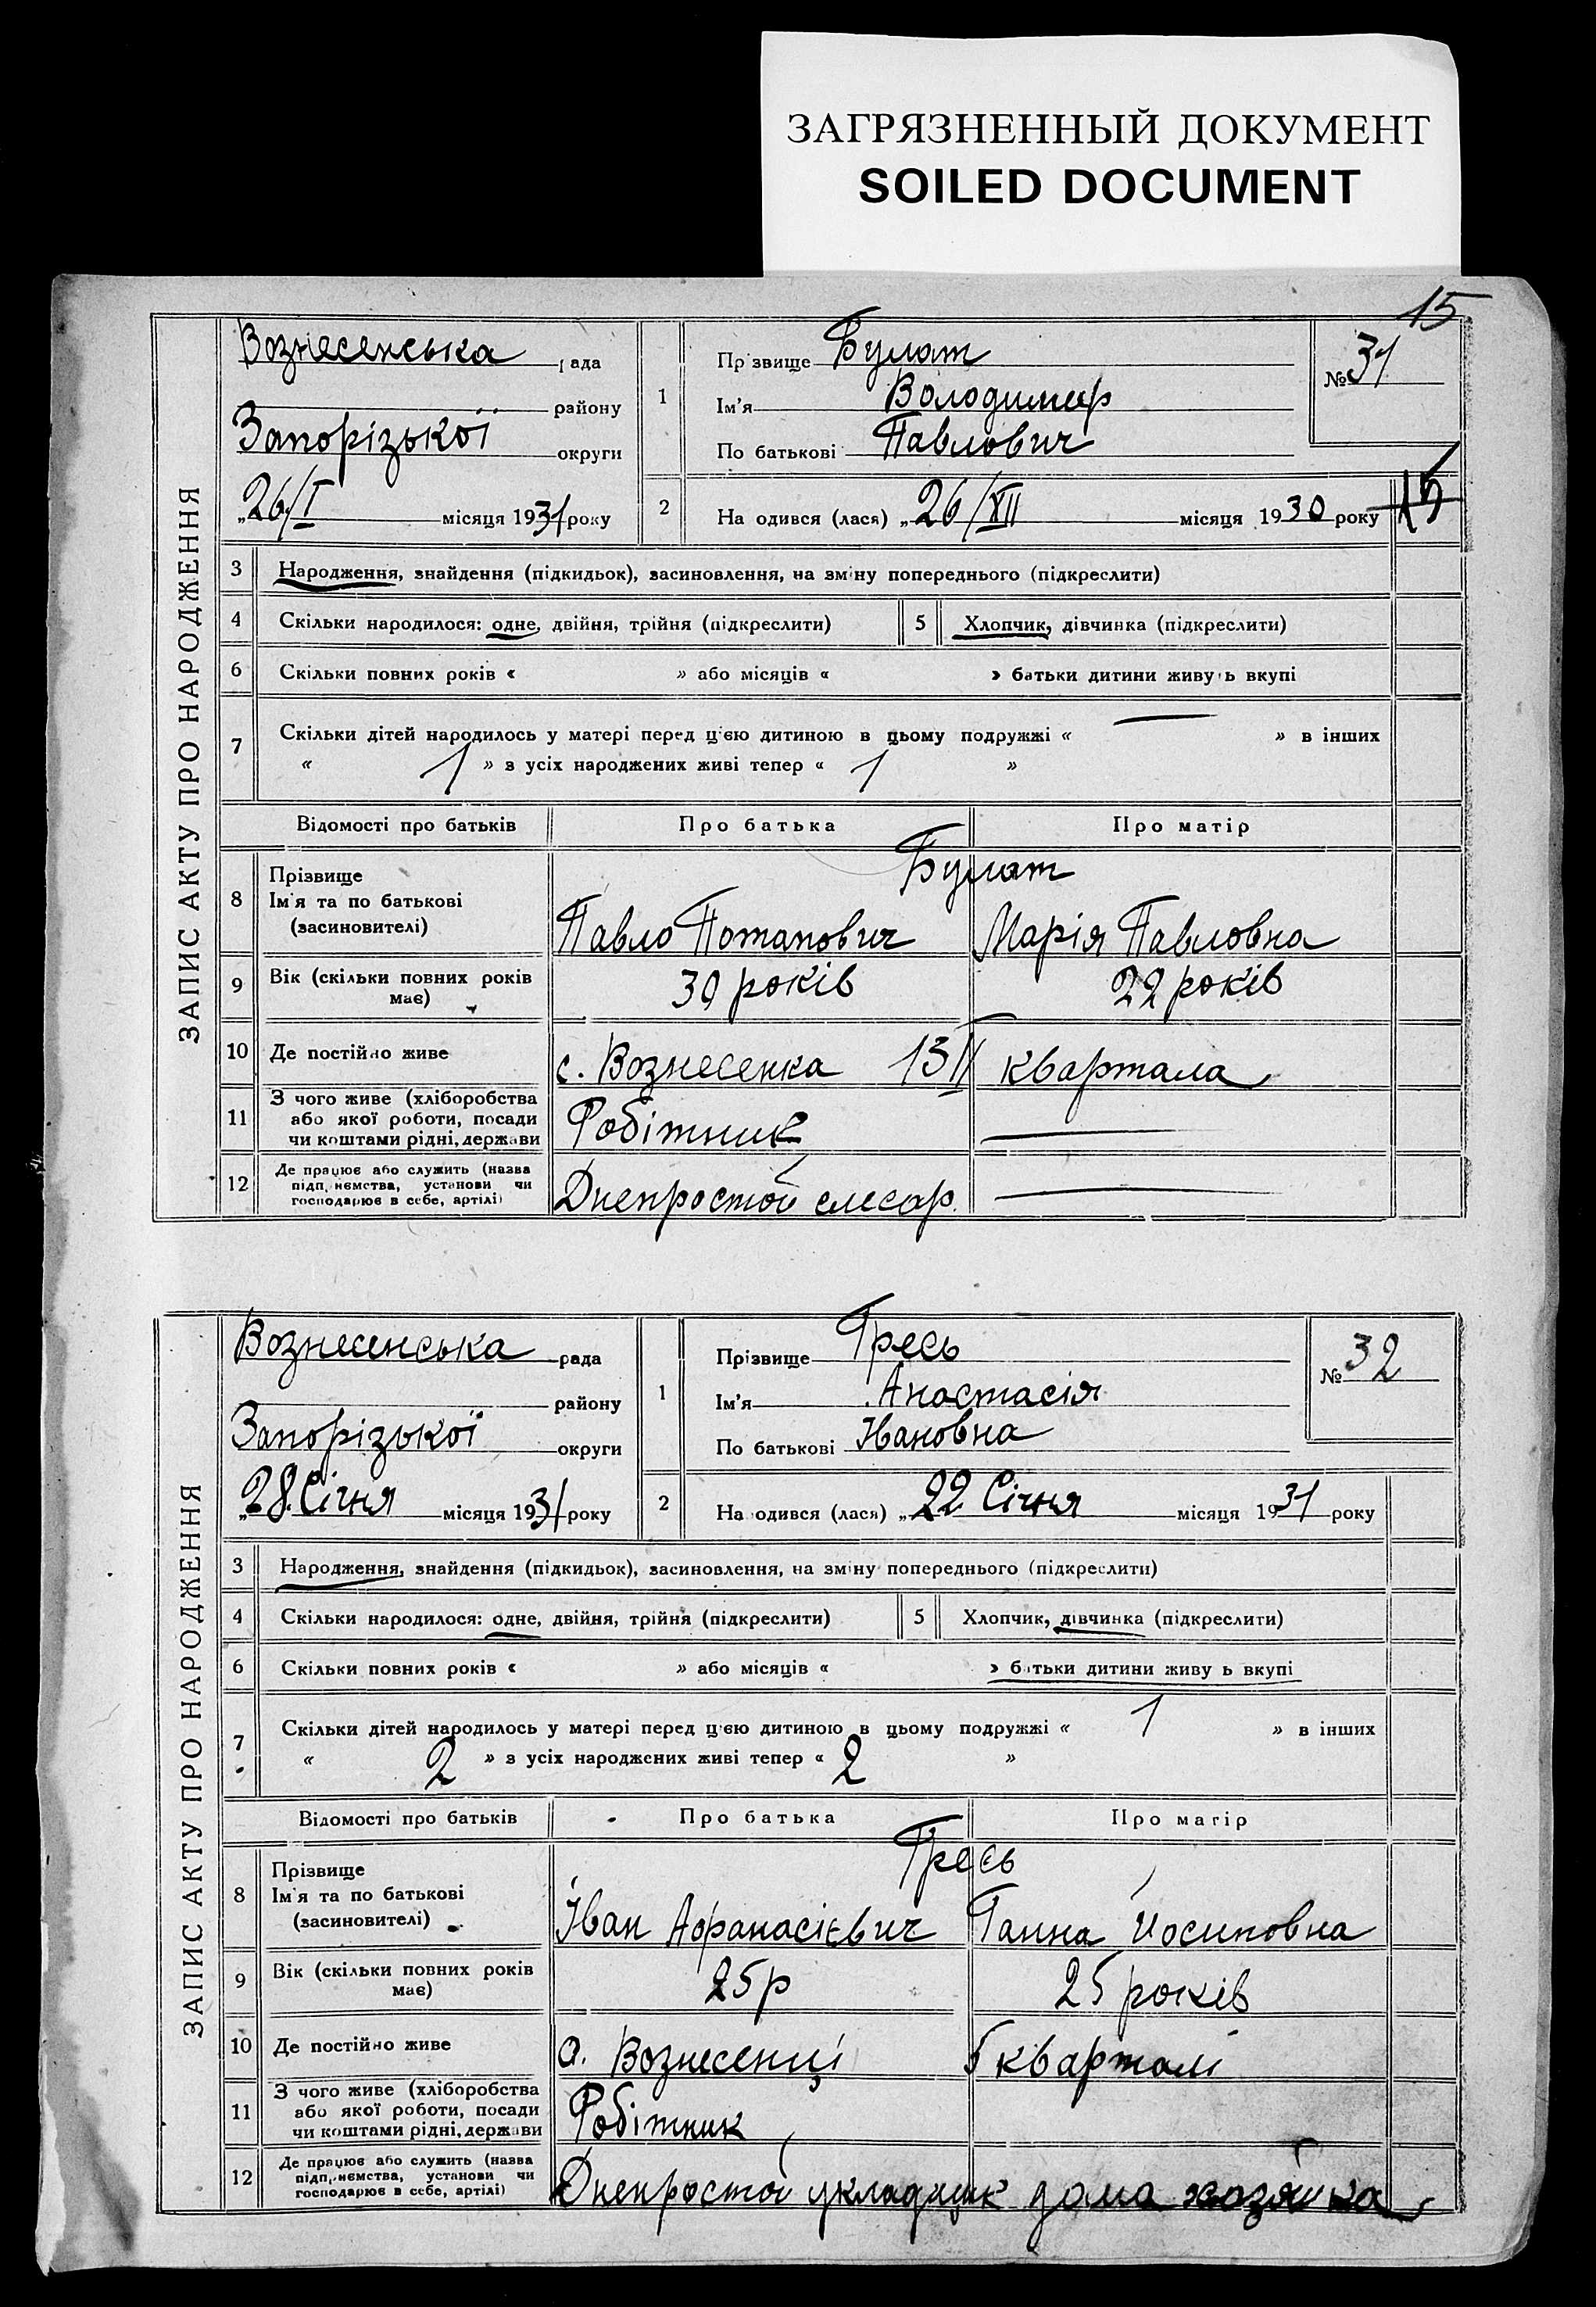 ЗАГРЯЗНЕННЫЙ ДОКУМЕНТ
SOILED DOCUMENT
15
ЗАПИС АКТУ ПРО НАРОДЖЕННЯ
Вознесенська рада
району
Запорізької округи
„26/I місяця 1931 року
1
Прізвище Булат
Ім'я Володимир
По батькові Павлович
№ 31
2
Народився (лася) „26/XII місяця 1930 року
15
3 Народження, знайдення (підкидьок), засиновлення, на зміну попереднього (підкреслити)
4 Скільки народилося: одне, двійня, трійня (підкреслити) 5 Хлопчик, дівчинка (підкреслити)
6 Скільки повних років « » або місяців « » батьки дитини живуть вкупі
7 Скільки дітей народилось у матері перед цією дитиною в цьому подружжі « — » в інших
« 1 » з усіх народжених живі тепер « 1 »
Відомості про батьків Про батька Про матір
8 Прізвище
Ім'я та по батькові
(засиновителі)
Булат
Павло Потапович Марія Павловна
9 Вік (скільки повних років
має)
30 років 22 років
10 Де постійно живе с. Вознесенка 13 II квартала
11 З чого живе (хліборобства
або якої роботи, посади
чи коштами рідні, держави
Робітник —
12 Де працює або служить (назва
підприємства, установи чи
господарює в себе, артілі)
Днепрострой слесар. —
ЗАПИС АКТУ ПРО НАРОДЖЕННЯ
Вознесенська рада
району
Запорізької округи
„28 Січня місяця 1931 року
1
Прізвище Гресь
Ім'я Анастасія
По батькові Івановна
№ 32
2
Народився (лася) „22 Січня місяця 1931 року
3 Народження, знайдення (підкидьок), засиновлення, на зміну попереднього (підкреслити)
4 Скільки народилося: одне, двійня, трійня (підкреслити) 5 Хлопчик, дівчинка (підкреслити)
6 Скільки повних років « » або місяців « » батьки дитини живуть вкупі
7 Скільки дітей народилось у матері перед цією дитиною в цьому подружжі « 1 » в інших
« 2 » з усіх народжених живі тепер « 2 »
Відомості про батьків Про батька Про матір
8 Прізвище
Ім'я та по батькові
(засиновителі)
Гресь
Іван Афанасієвич Ганна Йосиповна
9 Вік (скільки повних років
має)
25 р 25 років
10 Де постійно живе с. Вознесенці 5 кварталі
11 З чого живе (хліборобства
або якої роботи, посади
чи коштами рідні, держави
Робітник
12 Де працює або служить (назва
підприємства, установи чи
господарює в себе, артілі)
Днепрострой укладчик дома хозяйка